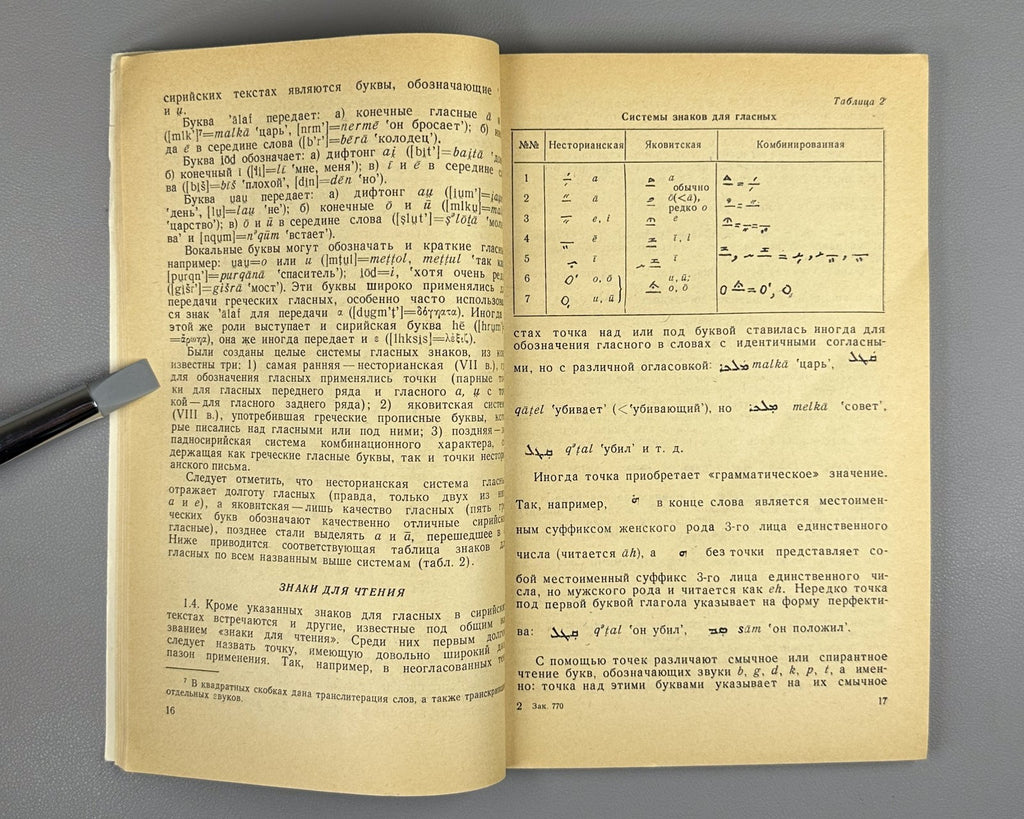 сирийских текстах являются буквы, обозначающие
и u̯.
Буква 'ālaf передает: а) конечные гласные ā и
([mlk']⁷=malkā 'царь', [nrm']=nermē 'он бросает'); б)
да ē в середине слова ([b'r']=bērā 'колодец').
Буква i̯ōd обозначает: а) дифтонг ai̯ ([bi̯t']=bai̯tā
б) конечный ī ([li̯]=lī 'мне, меня'); в) ī и ē в середине
ва ([bi̯š]=bīš 'плохой', [di̯n]=dēn 'но').
Буква u̯au̯ передает: а) дифтонг au̯ ([i̯u̯m']=
'день', [lu̯]=lau̯ 'не'); б) конечные ō и ū ([mlku̯]=
'царство'); в) ō и ū в середине слова ([ṣlu̯t']=ṣᵊlōtā
ва' и [nqu̯m]=nᵊqūm 'встает').
Вокальные буквы могут обозначать и краткие
например: u̯au̯=o или u ([mṭu̯l]=meṭṭol, meṭṭul 'так
[pu̯rqn']=purqānā 'спаситель'); i̯ōd=i, 'хотя очень
([gi̯šr']=gišrā 'мост'). Эти буквы широко применялись
передачи греческих гласных, особенно часто
ся знак 'ālaf для передачи α ([du̯gm'ṭ']=δόγματα). Иногда
этой же роли выступает и сирийская буква hē
она же иногда передает и ε ([lhksi̯s]=λέξις).
Были созданы целые системы гласных знаков, из
известны три: 1) самая ранняя — несторианская (VII в.),
для обозначения гласных применялись точки (парные
ки для гласных переднего ряда и гласного a, u̯ с
кой — для гласного заднего ряда); 2) яковитская
(VIII в.), употребившая греческие прописные буквы,
рые писались над гласными или под ними; 3) поздняя —
падносирийская система комбинационного характера,
держащая как греческие гласные буквы, так и точки
анского письма.
Следует отметить, что несторианская система
отражает долготу гласных (правда, только двух из
a и e), а яковитская — лишь качество гласных (пять
ческих букв обозначают качественно отличные сирийские
гласные), позднее стали выделять a и ā, перешедшее в
Ниже приводится соответствующая таблица знаков
гласных по всем названным выше системам (табл. 2).
ЗНАКИ ДЛЯ ЧТЕНИЯ
1.4. Кроме указанных знаков для гласных в сирийских
текстах встречаются и другие, известные под общим
званием «знаки для чтения». Среди них первым
следует назвать точку, имеющую довольно широкий
пазон применения. Так, например, в неогласованных
⁷ В квадратных скобках дана транслитерация слов, а также
отдельных звуков.
16
Таблица 2
Системы знаков для гласных
№№ Несторианская Яковитская Комбинированная
1 a a
2 ā обычно ō(<ā), редко o
3 e, i e
4 ē ī, i
5 ī ī
6 o, ō u, ū;
7 u, ū o, ō
стах точка над или под буквой ставилась иногда для
обозначения гласного в словах с идентичными согласны-
ми, но с различной огласовкой: ܡܠܟܐ malkā 'царь', ܩܛܠ
qāṭel 'убивает' (<'убивающий'), но ܡܠܟܐ melkā 'совет',
ܩܛܠ qᵊṭal 'убил' и т. д.
Иногда точка приобретает «грамматическое» значение.
Так, например, ܗ̇ в конце слова является местоимен-
ным суффиксом женского рода 3-го лица единственного
числа (читается āh), а ܗ без точки представляет со-
бой местоименный суффикс 3-го лица единственного чи-
сла, но мужского рода и читается как eh. Нередко точка
под первой буквой глагола указывает на форму перфекти-
ва: ܩܛܠ qᵊṭal 'он убил', ܣܡ sām 'он положил'.
С помощью точек различают смычное или спирантное
чтение букв, обозначающих звуки b, g, d, k, p, t, а имен-
но: точка над этими буквами указывает на их смычное
2 Зак. 770
17